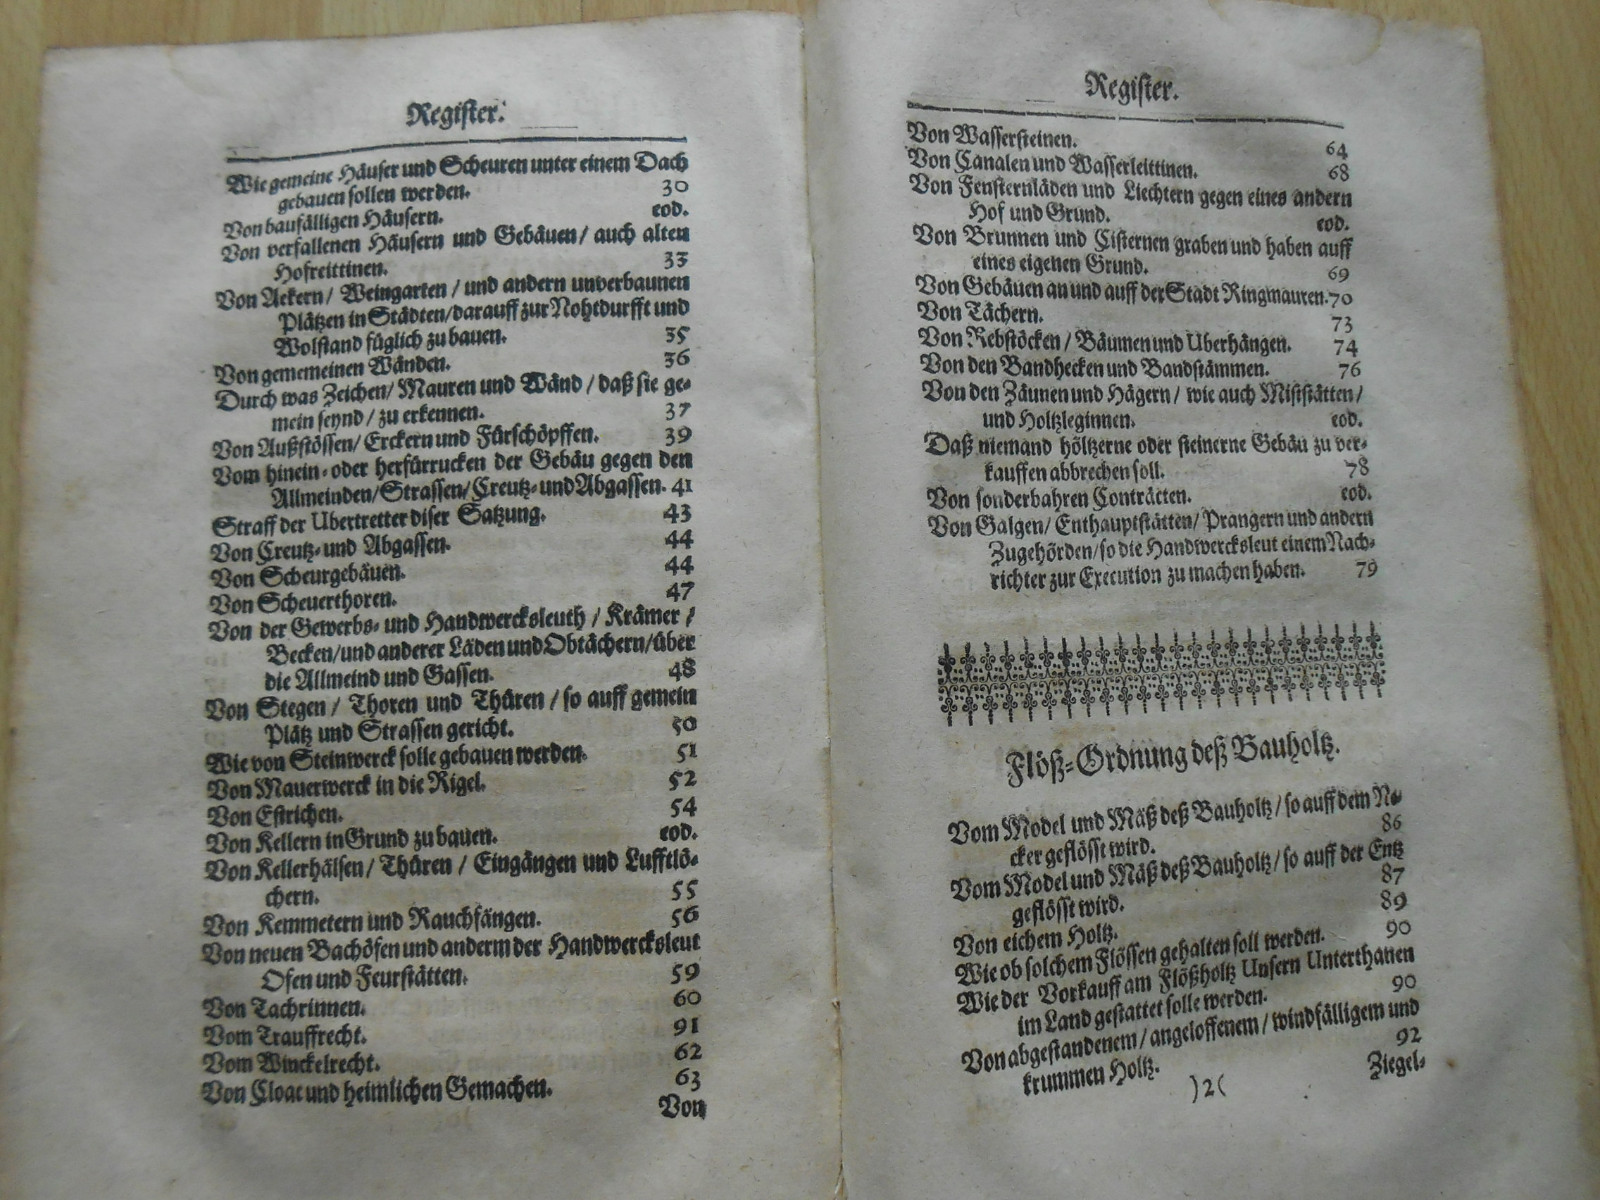 Register.
Wie gemeine Häuser und Scheuren unter einem Dach
gebauen sollen werden. 30
Von baufälligen Häusern. eod.
Von verfallenen Häusern und Gebäuen/ auch alten
Hofreittinen. 33
Von Aekern/ Weingarten/ und andern unverbaunen
Plätzen in Städten/darauff zur Nohtdurfft und
Wolstand füglich zu bauen. 35
Von gemeinen Wänden. 36
Durch was Zeichen/ Mauren und Wänd/ daß sie ge-
mein seynd/ zu erkennen. 37
Von Außstössen/ Erckern und Fürschöpffen. 39
Vom hinein- oder herfürrucken der Gebäu gegen den
Allmeinden/Strassen/Creutz- und Abgassen. 41
Straff der Ubertretter diser Satzung. 43
Von Creutz- und Abgassen. 44
Von Scheurgebäuen. 44
Von Scheuerthoren. 47
Von der Gewerbs- und Handwercksleuth/ Krämer/
Becken/und anderer Läden und Obtächern/über
die Allmeind und Gassen. 48
Von Stegen/ Thoren und Thüren/ so auff gemein
Plätz und Strassen gericht. 50
Wie von Steinwerck solle gebauen werden. 51
Von Mauerwerck in die Rigel. 52
Von Estrichen. 54
Von Kellern in Grund zu bauen. eod.
Von Kellerhälsen/ Thüren/ Eingängen und Lufftlö-
chern. 55
Von Kemmetern und Rauchfängen. 56
Von neuen Bachöfen und anderm der Handwercksleut
Ofen und Feurstätten. 59
Von Tachrinnen. 60
Vom Trauffrecht. 91
Vom Winckelrecht. 62
Von Cloac und heimlichen Gemachen. 63
Von
Register.
Von Wassersteinen. 64
Von Canalen und Wasserleittinen. 68
Von Fensternläden und Liechtern gegen eines andern
Hof und Grund. eod.
Von Brunnen und Cisternen graben und haben auff
eines eigenen Grund. 69
Von Gebäuen an und auff der Stadt Ringmauren. 70
Von Tächern. 73
Von Rebstöcken/ Bäumen und Uberhängen. 74
Von den Bandhecken und Bandstämmen. 76
Von den Zäunen und Hägern/ wie auch Miststätten/
und Holtzleginnen. eod.
Daß niemand höltzerne oder steinerne Gebäu zu ver-
kauffen abbrechen soll. 78
Von sonderbahren Contràcten. eod.
Von Galgen/ Enthauptstätten/ Prangern und andern
Zugehörden/so die Handwercksleut einem Nach-
richter zur Execution zu machen haben. 79
Flöß-Ordnung deß Bauholtz.
Vom Model und Mäß deß Bauholtz/ so auff dem Ne-
cker geflösst wird. 86
Vom Model und Mäß deß Bauholtz/ so auff der Entz
geflösst wird. 87
Von eichem Holtz. 89
Wie ob solchem Flössen gehalten soll werden. 90
Wie der Vorkauff am Flößholtz Unsern Unterthanen
im Land gestattet solle werden. 90
Von abgestandenem/ angeloffenem/ windfälligem und
krummen Holtz. 92
)2( Ziegel-